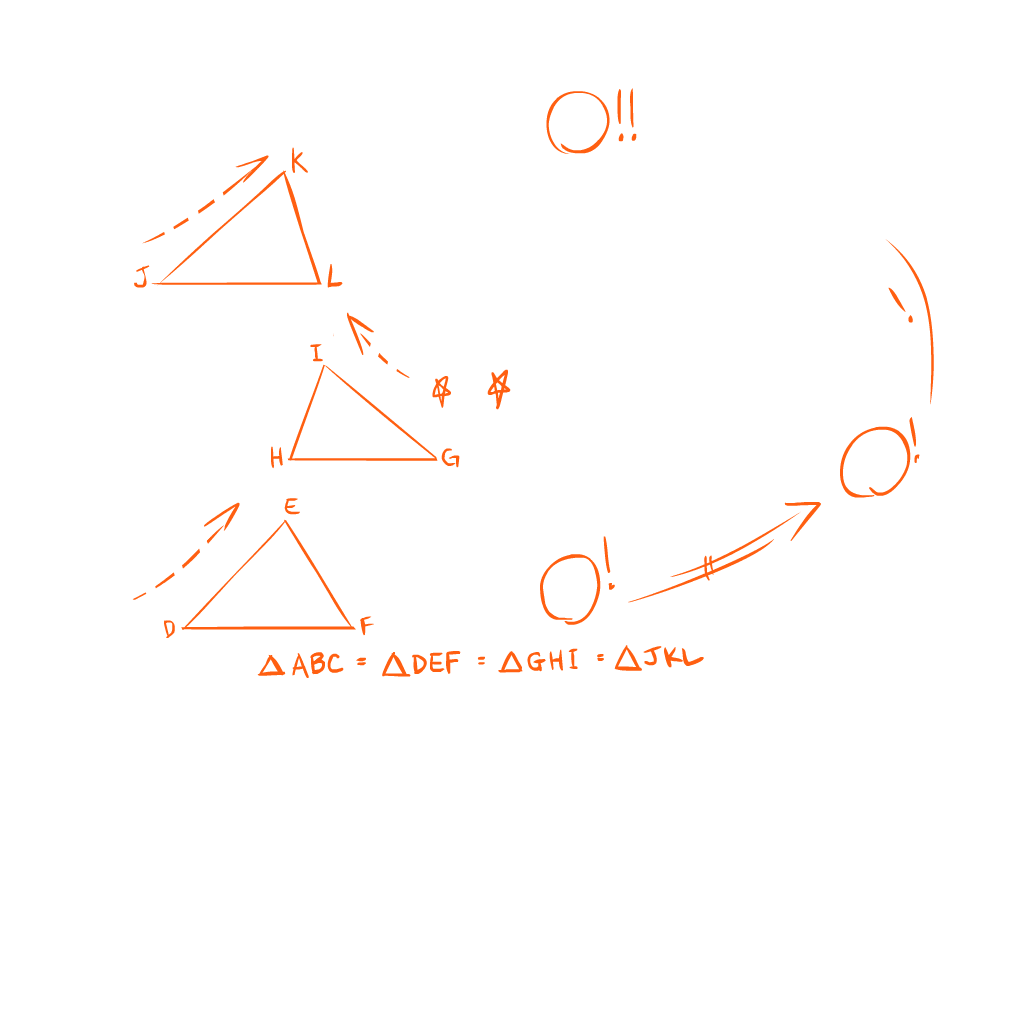 !!
K
J
L
!
I
!
H
G
E
!
D
F
△ABC = △DEF = △GHI = △JKL